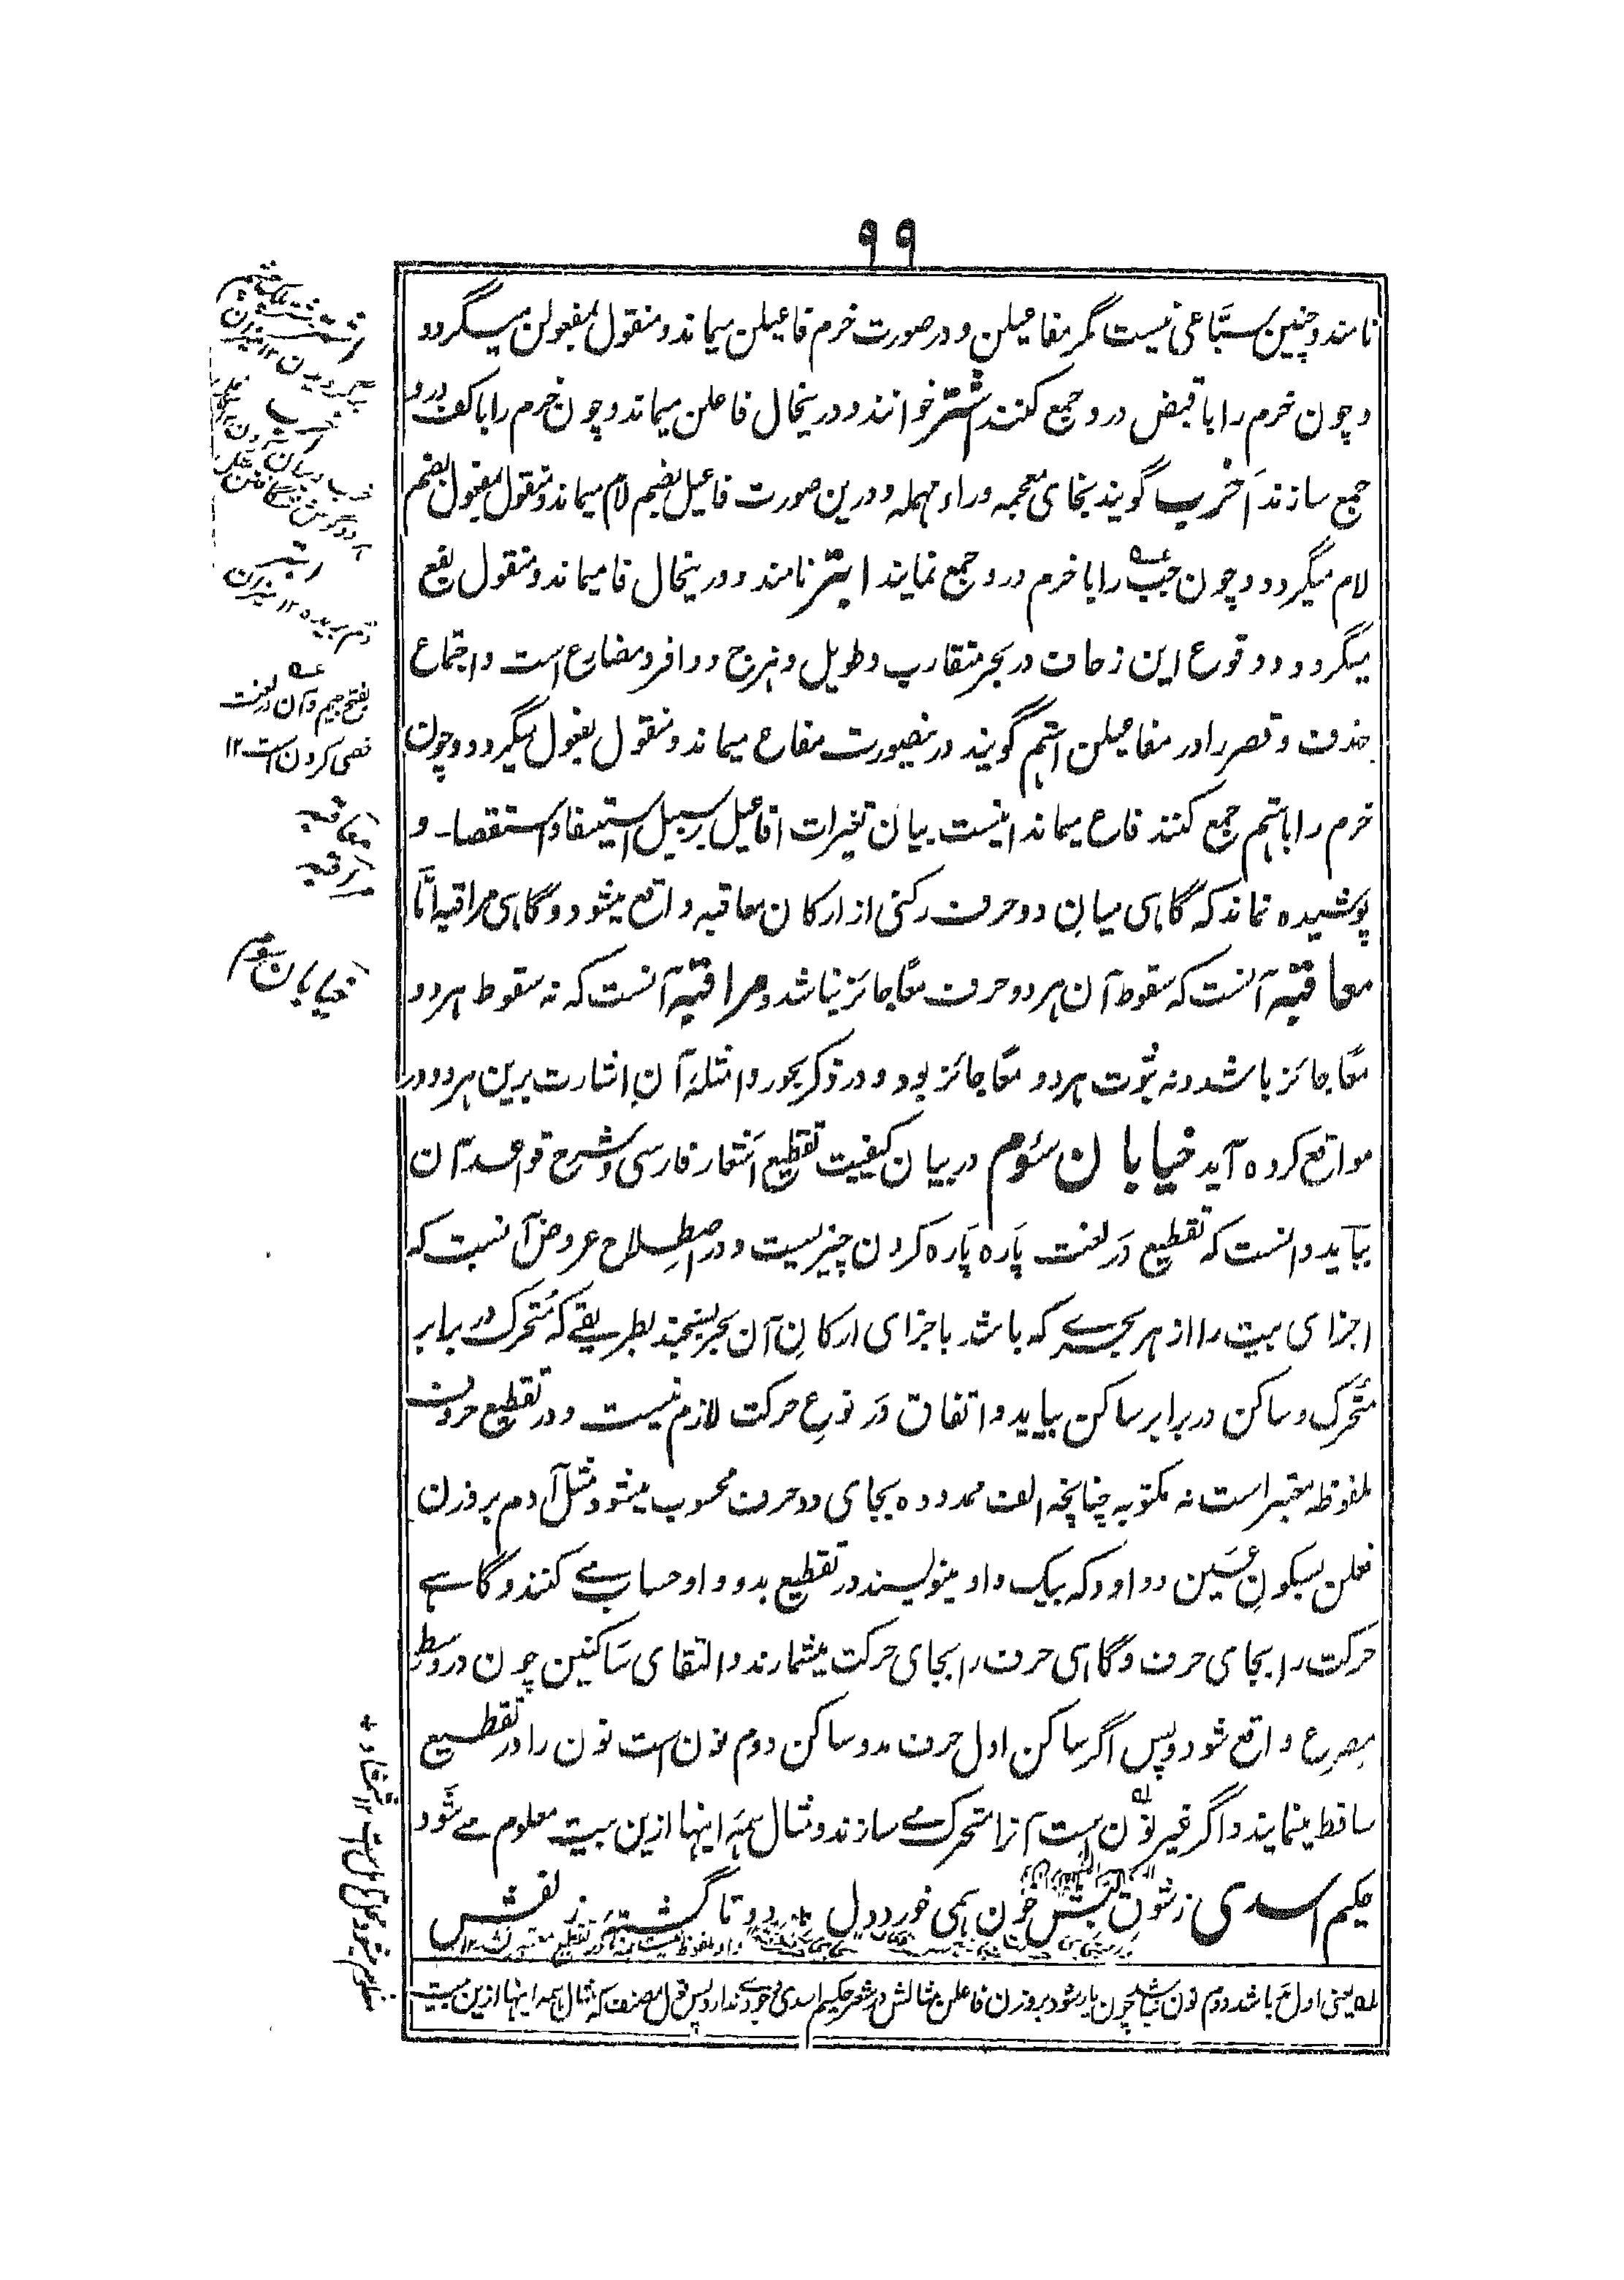 ۹۹
نامند و چنین سباعی نیست مگر مفاعیلن و در صورت خرم فاعیلن میماند و منقول بمفعولن میگردد
و چون خرم را با قبض درو جمع کنند اشتر خوانند و درینحال فاعلن میماند و چون خرم را با کف درو
جمع سازند اخرب گویند بخای معجمه و راء مهمله و درین صورت فاعیل بضم لام میماند و منقول بمفعول بضم
لام میگردد و چون جب را با خرم درو جمع نمایند ابتر نامند و درینحال فا میماند و منقول بفع
میگردد و وقوع این زحاف در بحر متقارب و طویل و هزج و وافر و مضارع است و اجتماع
حذف و قصر را در مفاعیلن اهتم گویند درینصورت مفاع میماند و منقول بفعول میگردد و چون
خرم را با هتم جمع کنند فاع میماند اینست بیان تغیرات افاعیل بر سبیل استیفا و استقصا و
پوشیده نماند که گاهی میان دو حرف رکنی از ارکان معاقبه واقع میشود و گاهی مراقبه امّا
معاقبه آنست که سقوط آن هر دو حرف معًا جائز نباشد و مراقبه آنست که نه سقوط هر دو
معًا جائز باشد و نه ثبوت هر دو معًا جائز بود و در ذکر بحور و امثلهٔ آن اشارت برین هر دو در
مواقع کرده آید خیابان سوم در بیان کیفیت تقطیع اشعار فارسی و شرح قواعد آن
بباید دانست که تقطیع در لغت پاره پاره کردن چیزیست و در اصطلاح عروض آنست که
اجزای بیت را از هر بحرے که باشد باجزای ارکان آن بحر بسنجند بطریقے که متحرک در برابر
متحرک و ساکن در برابر ساکن بیاید و اتفاق در نوع حرکت لازم نیست و در تقطیع حروف
ملفوظه معتبر است نه مکتوبه چنانچه الف ممدوده بجای دو حرف محسوب میشود مثل آدم بر وزن
فعلن بسکون عین و داود که بیک واو مینویسند در تقطیع بدو واو حساب مے کنند و گاہے
حرکت را بجای حرف و گاهی حرف را بجای حرکت میشمارند و التقای ساکنین چون در وسط
مصرع واقع شود پس اگر ساکن اول حرف مد و ساکن دوم نون است نون را در تقطیع
ساقط مینمایند و اگر غیر نون است آنرا متحرک مے سازند و مثال همهٔ اینها ازین بیت معلوم مے شود
حکیم اسدی ز شوق لبش خون همی خورد دل دو تا گشته ز لفش
له یعنی اول مد باشد دوم نون نباشد چون یار شود بر وزن فاعلن مثالش در شعر حکیم اسدی وجودے ندارد پس قول مصنف که مثال همه اینها ازین بیت
معاقبه
مراقبه
خیابان سوم
بفتح جیم و آن در لغت
خصی کردن است ۱۲